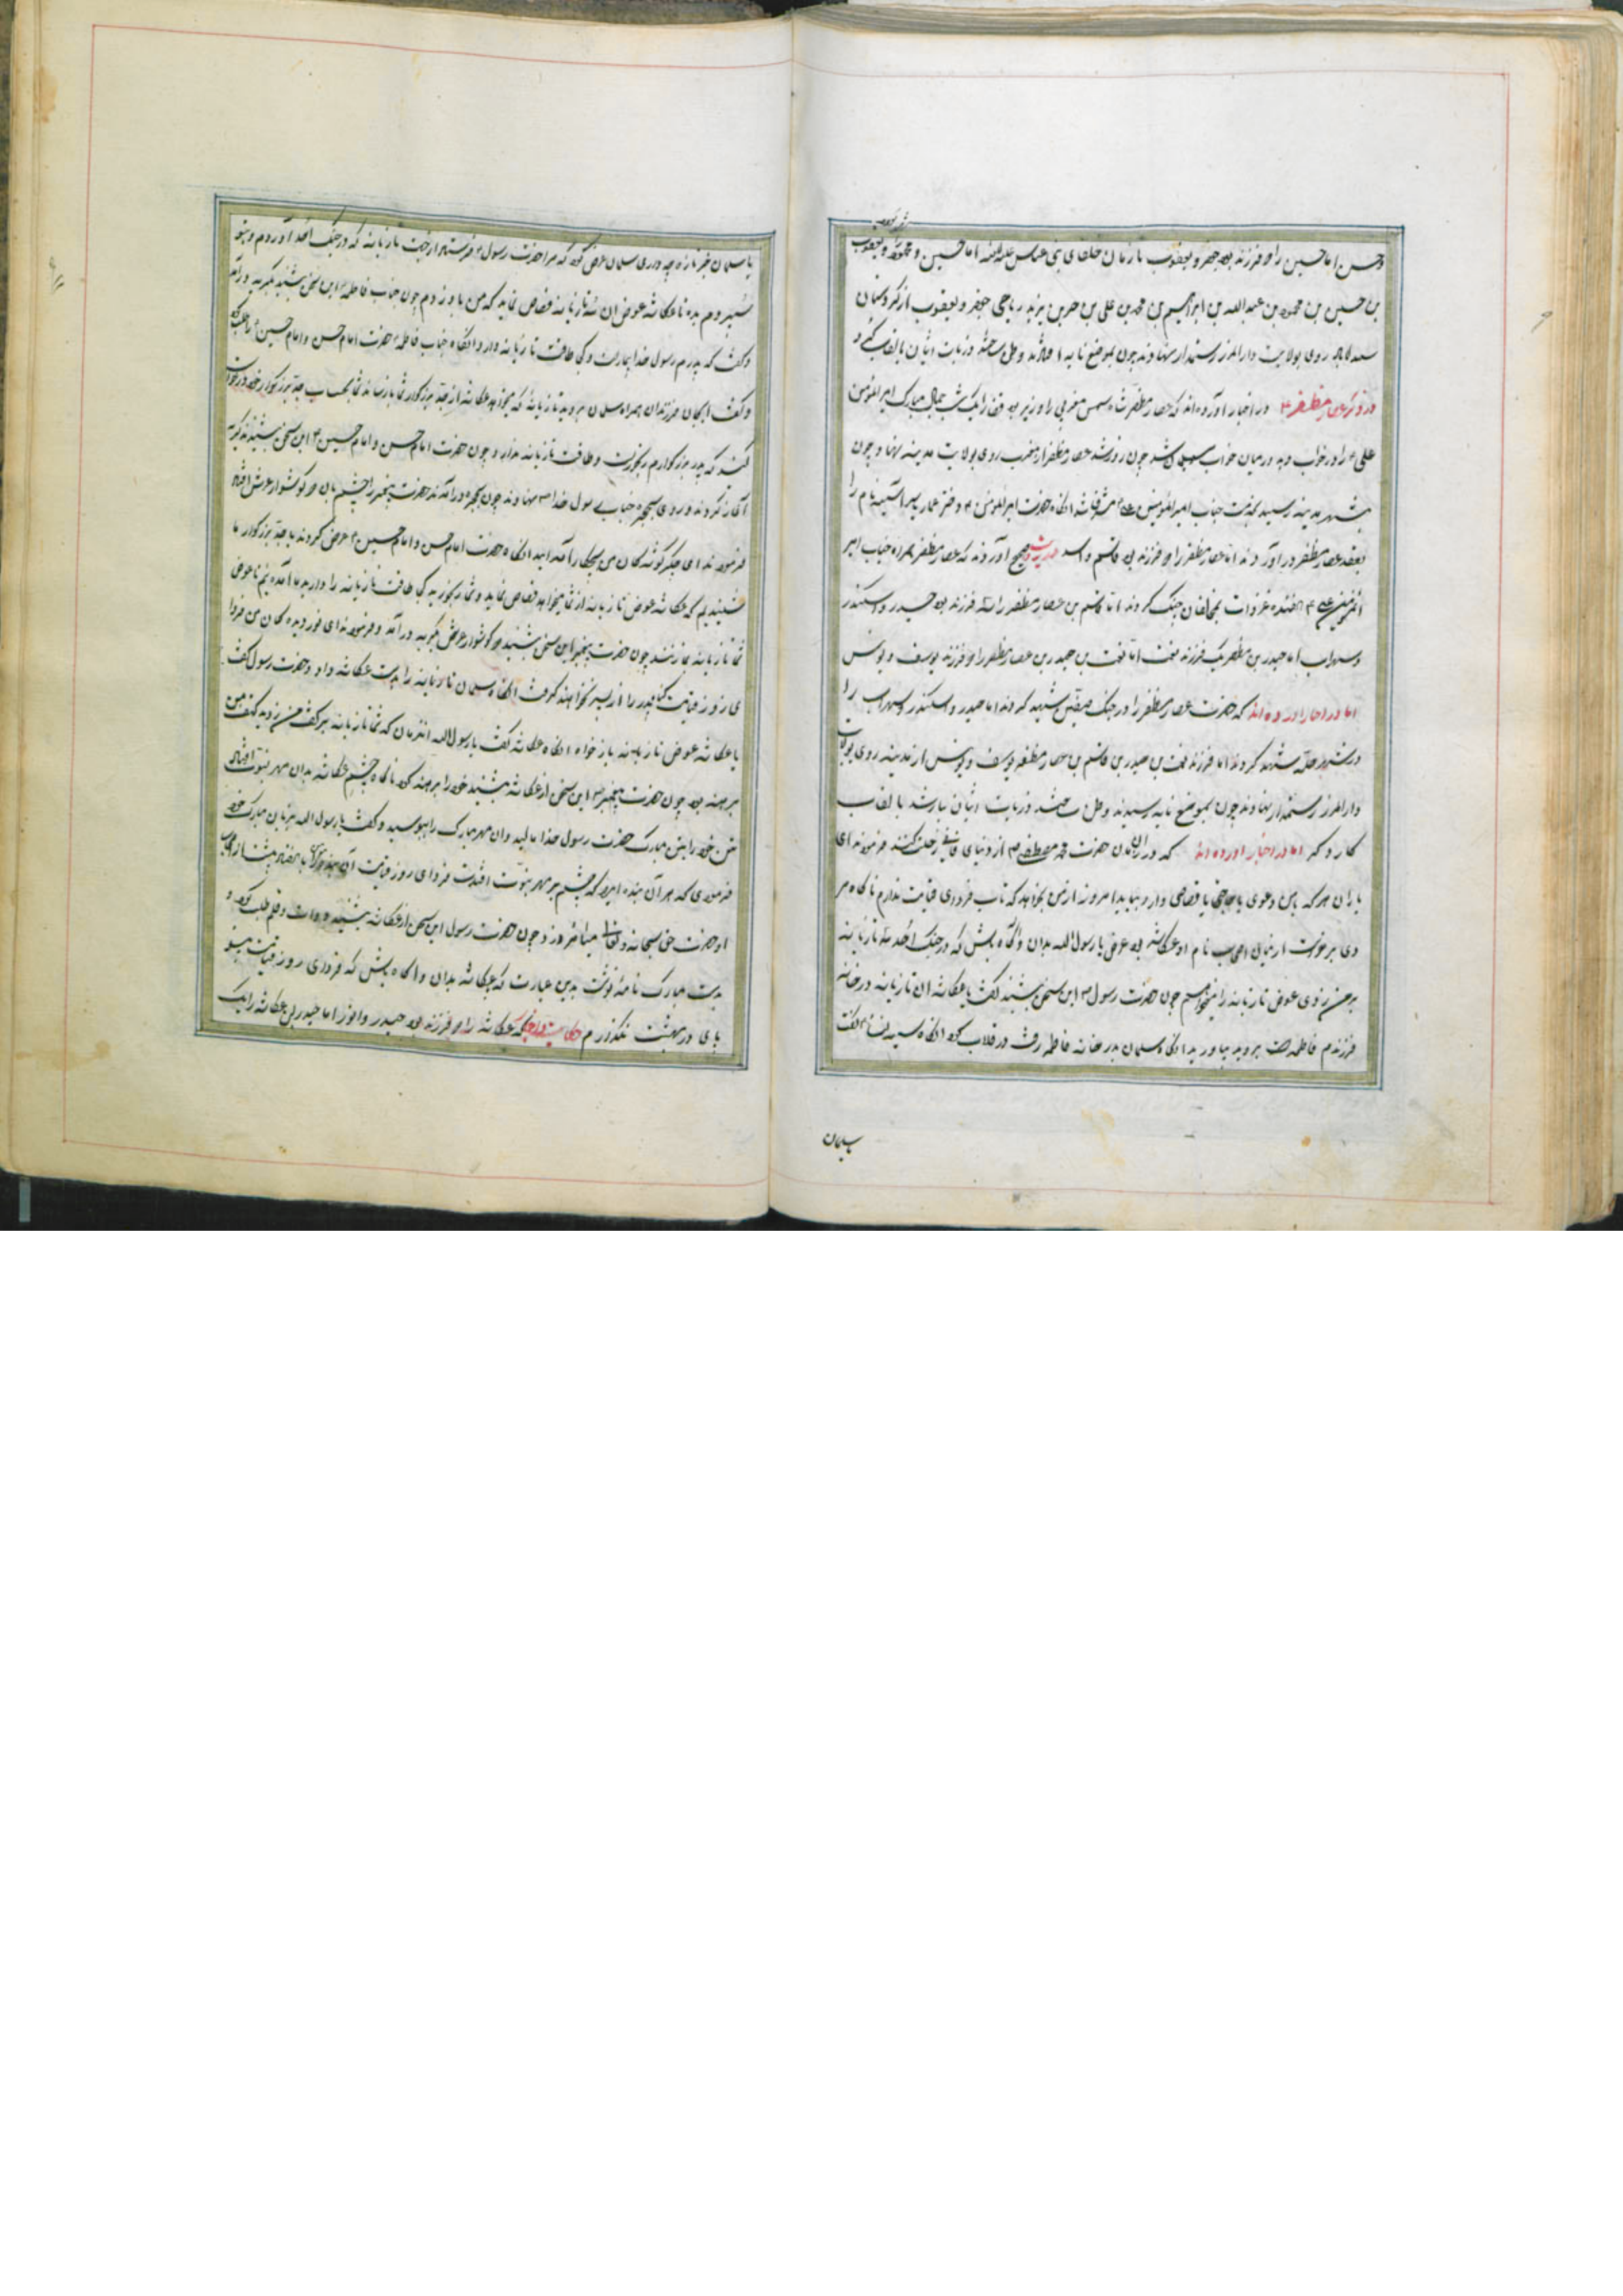 وحسن اما حسین را دو فرزند بود جعفر و یعقوب تا زمان خلفای بنی عباس علیه اللعنه اما حسین و محمود و یعقوب
بن حسین بن محمود بن عبدالله بن ابراهیم بن محمد بن علی بن حر بن یزید ریاحی جعفر و یعقوب از
روی بولایت دارالمرز رستمدار نهادند چون بموضع وطن ساختند و ذریات ایشان بالقاب
در ذکر عصار مظفر در اخبار آورده اند که عصار مظفر شاه شمس مغربی را وزیر بود قضا را یک شب جمال مبارک امیر المؤمنین
علی را در خواب دید در میان خواب مسلمان شد چون روز شد عصار مظفر از مغرب روی بولایت مدینه نهاد چون
بشهر مدینه رسید بخدمت جناب امیر المؤمنین علی مشرف شد آنگاه حضرت امیر المؤمنین دختر عمار یاسر آمنه نام را
بعقد عصار مظفر در آوردند اما عصار مظفر را دو فرزند بود قاسم و اسد صحیح آوردند که عصار مظفر همراه جناب امیر
المؤمنین علی هفده غزوات بمخالفان جنگ کردند اما قاسم بن عصار مظفر را سه فرزند بود حیدر و اسکندر
و سهراب اما حیدر بن مظفر یک فرزند نعمت اما نعمت بن حیدر بن عصار مظفر را دو فرزند یوسف و یونس
اما در اخبار آورده اند که حضرت عصار مظفر را در جنگ صفین شهید کردند اما حیدر و اسکندر و سهراب را
در شهر حله شهید کردند اما فرزند نعمت بن حیدر بن قاسم بن عصار مظفر یوسف و یونس از مدینه روی بولایت
دارالمرز رستمدار نهادند چون بموضع رسیدند وطن ساختند و ذریات ایشان بالقاب
کارد گر اما در اخبار آورده اند که در آن زمان حضرت محمد مصطفی از دنیای فانی رحلت کنند فرمودند ای
یاران هر که بمن دعوی یا حاجتی یا قصاصی دارد بیاید امروز از من بخواهد که تاب فردای قیامت ندارم ناگاه مر
دی برخواست از میان اصحاب نام او عکاشه بود عرض یا رسول الله بدان و آگاه باش که در جنگ احد سه تازیانه
بر من زدی عوض تازیانه را میخواهم چون حضرت رسول این سخن بشنید گفت یا عکاشه آن تازیانه در خانه
فرزندم فاطمه است بروید بیاورید آنگاه سلمان بدر خانه فاطمه رفت دق الباب کرد آنگاه سیده نسا گفت
یا سلمان
یا سلمان خبر تازه چه داری سلمان عرض کرد که مرا حضرت رسول فرستاده از جهت تازیانه که در جنگ احد آوردم و بتو
سپردم بده تا عکاشه عوض آن سه تازیانه قصاص نماید که من باو زدم چون جناب فاطمه این سخن بشنید بگریه درآمد
و گفت که پدرم رسول خدا بیمار است و کی طاقت تازیانه دارد و آنگاه جناب فاطمه حضرت امام حسن و امام حسین را طلب کرد
و گفت ای جان فرزندان همراه سلمان بروید تازیانه که میخواهد عکاشه از جد بزرگوار شما باز ستاند شما بحساب جد بزرگوار خود درخواست
کنید که پدر بزرگوارم رنجور است و طاقت تازیانه ندارد چون حضرت امام حسن و امام حسین این سخن بشنیدند گریه
آغاز کردند و روی بحجره جناب رسول خدا نهادند چون بحجره درآمدند حضرت پیغمبر را چشم بان دو گوشوار عرش افتاد
فرمودند ای جگر گوشه گان من بچکار آمده اید آنگاه حضرت امام حسن و امام حسین عرض کردند یا جد بزرگوار ما
شنیدیم که عکاشه عوض تازیانه از شما میخواهد قصاص نماید و شما رنجورید کی طاقت تازیانه را دارید ما آمده ایم تا عوض
شما تازیانه بما زنند چون حضرت پیغمبر این سخن بشنید دو گوشوار عرش بگریه درآمد و فرمودند ای نور دیده گان من فردا
ی روز قیامت گناه پدر را از پسر نخواهند گرفت آنگاه سلمان تازیانه را بدست عکاشه داد و حضرت رسول گفت
یا عکاشه عوض تازیانه باز خواه آنگاه عکاشه گفت یا رسول الله آنزمان که شما تازیانه بر کتف من زدید کتف من
برهنه بود چون حضرت پیغمبر این سخن از عکاشه بشنید خود را برهنه کرد ناگاه چشم عکاشه بدان مهر نبوت افتاد
تن خود را بتن مبارک حضرت رسول خدا مالید و آن مهر مبارک را ببوسید و گفت یا رسول الله بزبان مبارک خود
فرمودی که هر آن بنده ایرا که چشم بر مهر نبوت افتد فردای روز قیامت
او حضرت حق سبحانه و تعالی میآمرزد چون حضرت رسول این سخن از عکاشه بشنید دوات و قلم طلب کرد و
بدست مبارک نامه نوشت بدین عبارت که عکاشه بدان و آگاه باش که فردای روز قیامت بیتو
پای در بهشت نگذارم عکاشه را دو فرزند بود حیدر و اما حیدر بن عکاشه را یک